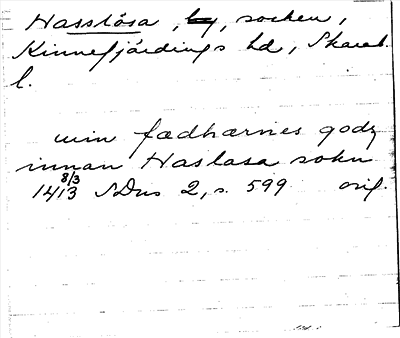 Hasslösa, by, socken,
Kinnefjärdings hd, Skarab.
l.
min fædhærnes godz
innan Haslasa sokn
8/3
1413 SDns 2, s. 599 orig.